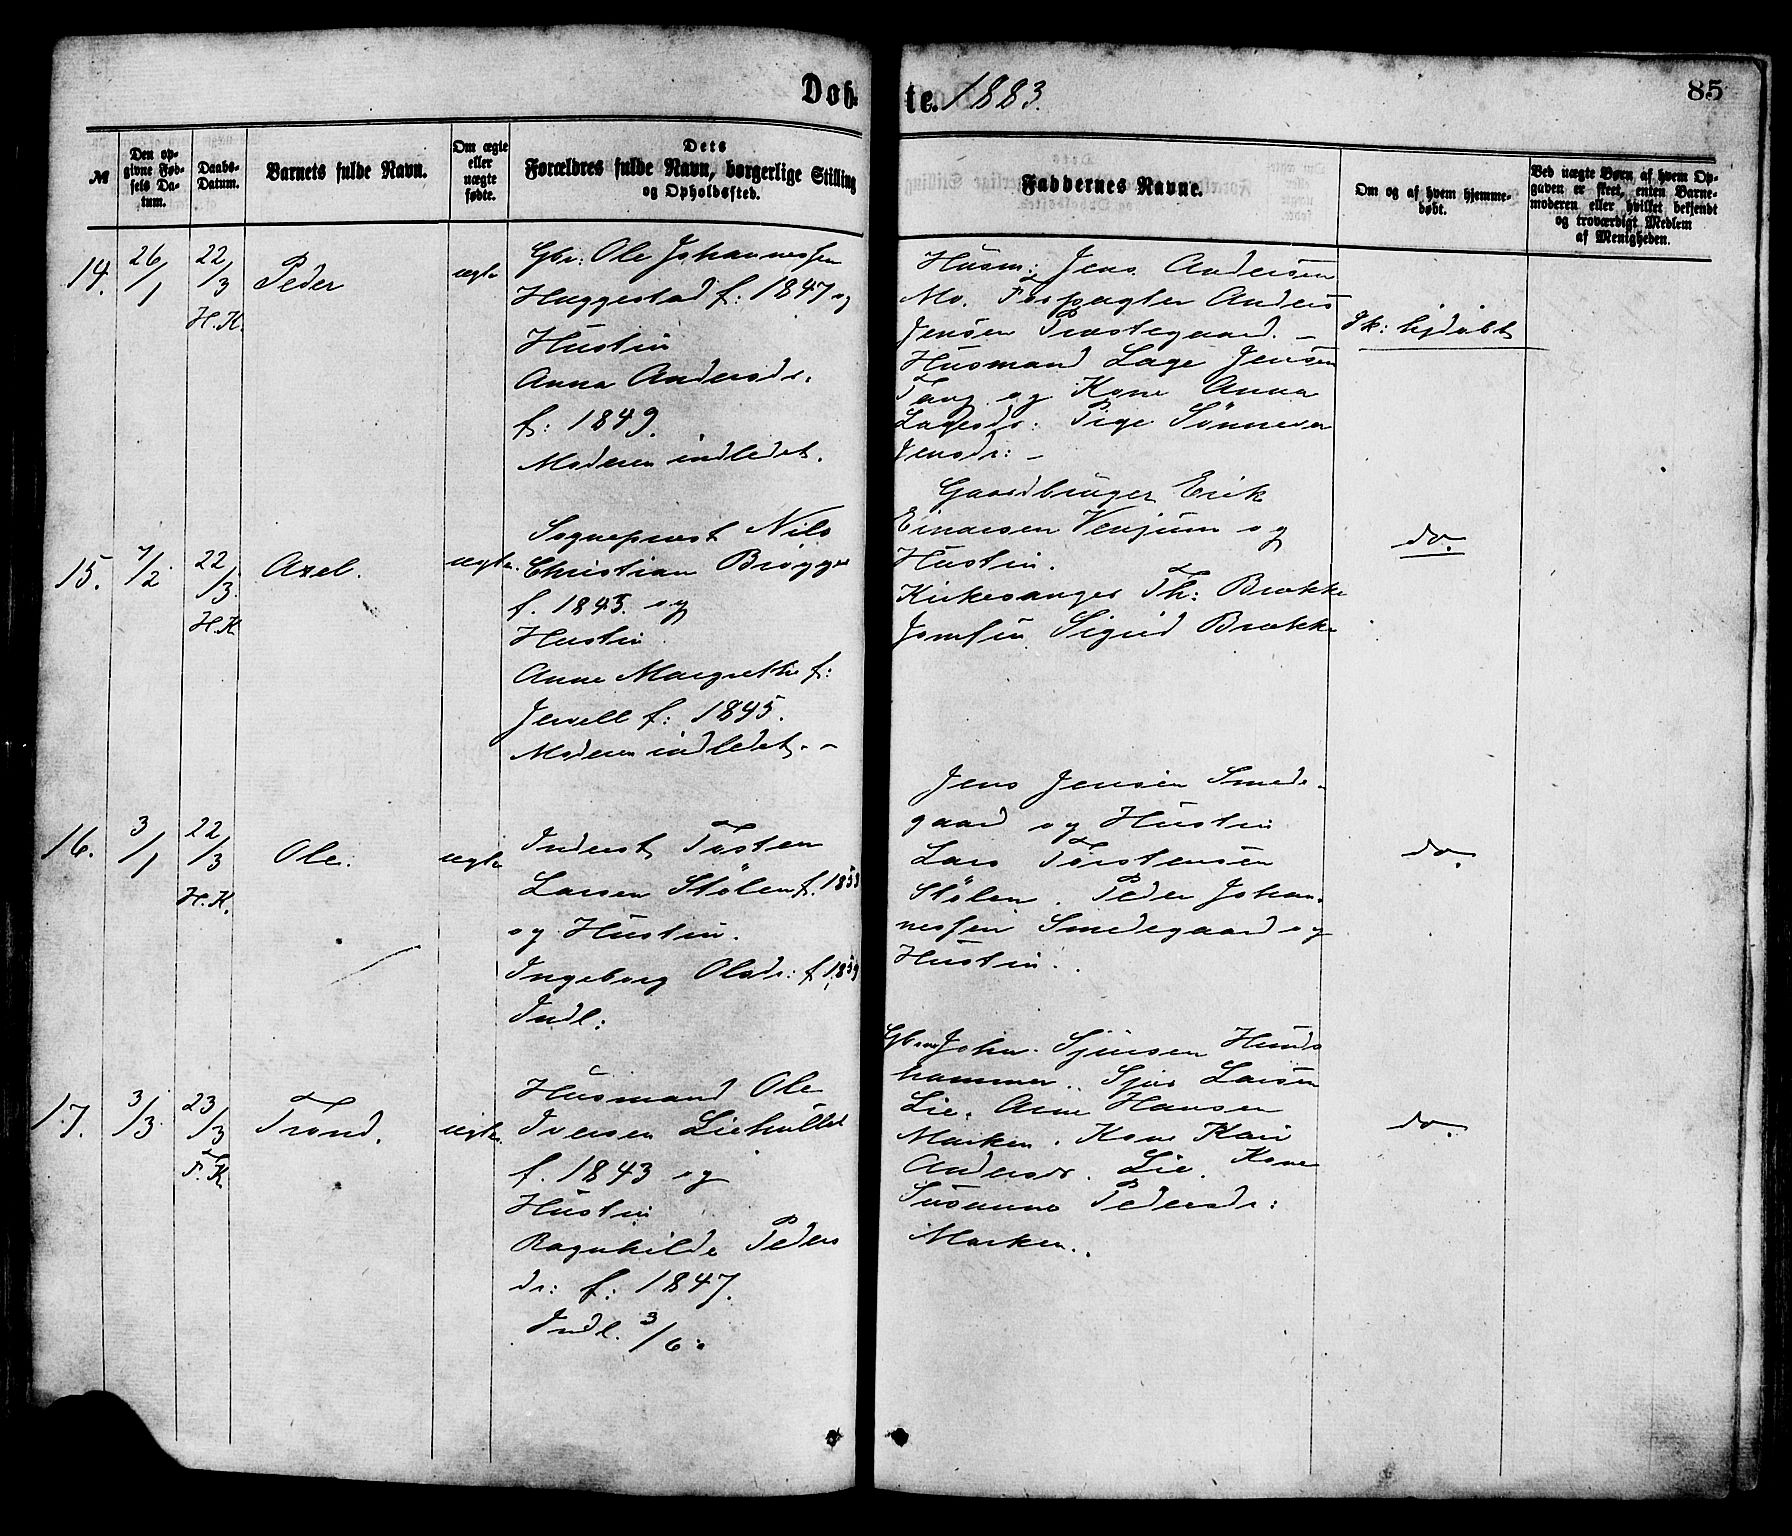 Døb-
te. 1883.
85
№
Den op-
givne Fød-
sels Da-
tum.
Daabs-
Datum.
Barnets fulde Navn.
Om ægte
eller
uægte
fødte.
Dets
Forældres fulde Navn, borgerlige Stilling
og Opholdssted.
Faddernes Navne.
Om og af hvem hjemme-
døbt.
Ved uægte Børn, af hvem Op-
gaven er skeet, enten Barne-
moderen eller hvilket bekjendt
og troværdigt Medlem
af Menigheden.
14.
26/1
22/3
H.K.
Peder
ægte
Gbr: Ole Johannessen
Haggestad f: 1847 og
Hustru
Anna Andersdr.
f: 1849.
Moderen indledet.
Husm: Jens Andersen
Mo. Forpagter Anders
Jensen Præstegaard. –
Husmand Lage Jensen
Tang og Kone Anna
Lagesdr: Pige Sønneva
Jensdr: –
Ik: hjdøbt
15.
7/2
22/3.
H.K
Axel.
ægte.
Sognepræst Nils
Christian Brøgger
f. 1843. og
Hustru.
Anne Margrethe f:
Jervell f: 1845.
Moderen indledet. –
Gaardbruger Erik
Einarsen Venjum og
Hustru.
Kirkesanger Th: Brække
Jomfru Sigrid Brække
do.
16.
3/1
22/3
H.K.
Ole.
ægte
Inderst Tosten
Larsen Stølen f. 1858
og Hustru.
Ingeborg Olsdr: f. 1859
Indl:
Jens Jensen Smede-
gaard og Hustru
Lars Torstensen
Stølen. Peder Johan-
nessen Smedegaard og
Hustru.
do.
17.
3/3.
23/3
F.K
Trond.
ægte.
Husmand Ole
Iversen Liehultet
f. 1843 og
Hustru
Ragnhilde Peders
dr: f: 1847.
Indl. 3/6.
Gbr John Sjursen Hunds
hammer. Sjur Larsen
Lie. Arne Hansen
Marken. Kone Kari
Andersdr. Lie. Kone
Susanne Pedersdr:
Marken.
do.